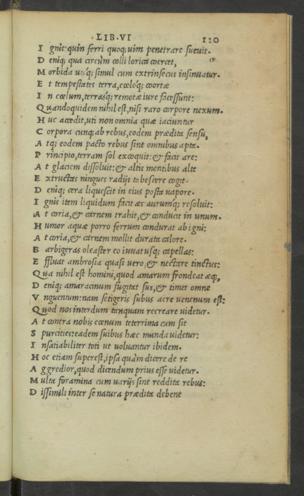 LIB.VI 120
I gnis: quin ferri quoq; uim penetrare sueuit.
D eniq; qua circum coeli lorica coercet,
M orbida uisq; simul cum extrinsecus insinuatur.
E t tempestates terra, coeloq; coortæ
I n coelum, terrasq; remotæ iure facessunt:
Q uandoquidem nihil est, nisi raro corpore nexum.
H uc accedit, uti non omnia quæ iaciuntur
C orpora cunq; ab rebus, eodem prædita sensu,
A tq; eodem pacto rebus sint omnibus apta.
P rincipio, terram sol excoquit: et facit are:
A t glaciem dissoluit: et altis montibus altè
E xtructas ningues radijs tabescere cogit.
D eniq; cera liquescit in eius posta uapore.
I gnis item liquidum facit æs aurumq; resoluit:
A t coria, et carnem trahit, et conducit in unum.
H umor aquæ porro ferrum condurat ab igni:
A t coria, et carnem mollit durata calore.
B arbigeras oleaster eo iuuat usq; capellas:
E ffluat ambrosia quasi uero, et nectare tinctus:
Q ua nihil est homini, quod amarum frondeat æq,
D eniq; amaracinum fugitat sus, et timet omne
V nguentum: nam setigeris subus acre uenenum est:
Q uod nos interdum tanquam recreare uidetur.
A t contra nobis coenum teterrima cum sit
S purcities: eadem suibus hæc munda uidetur:
I nsatiabiliter toti ut uoluantur ibidem.
H oc etiam superest, ipsa quàm dicere de re
A ggredior, quod dicendum prius esse uidetur.
M ulta foramina cum uarijs sint reddita rebus:
D issimili inter se natura prædita debent